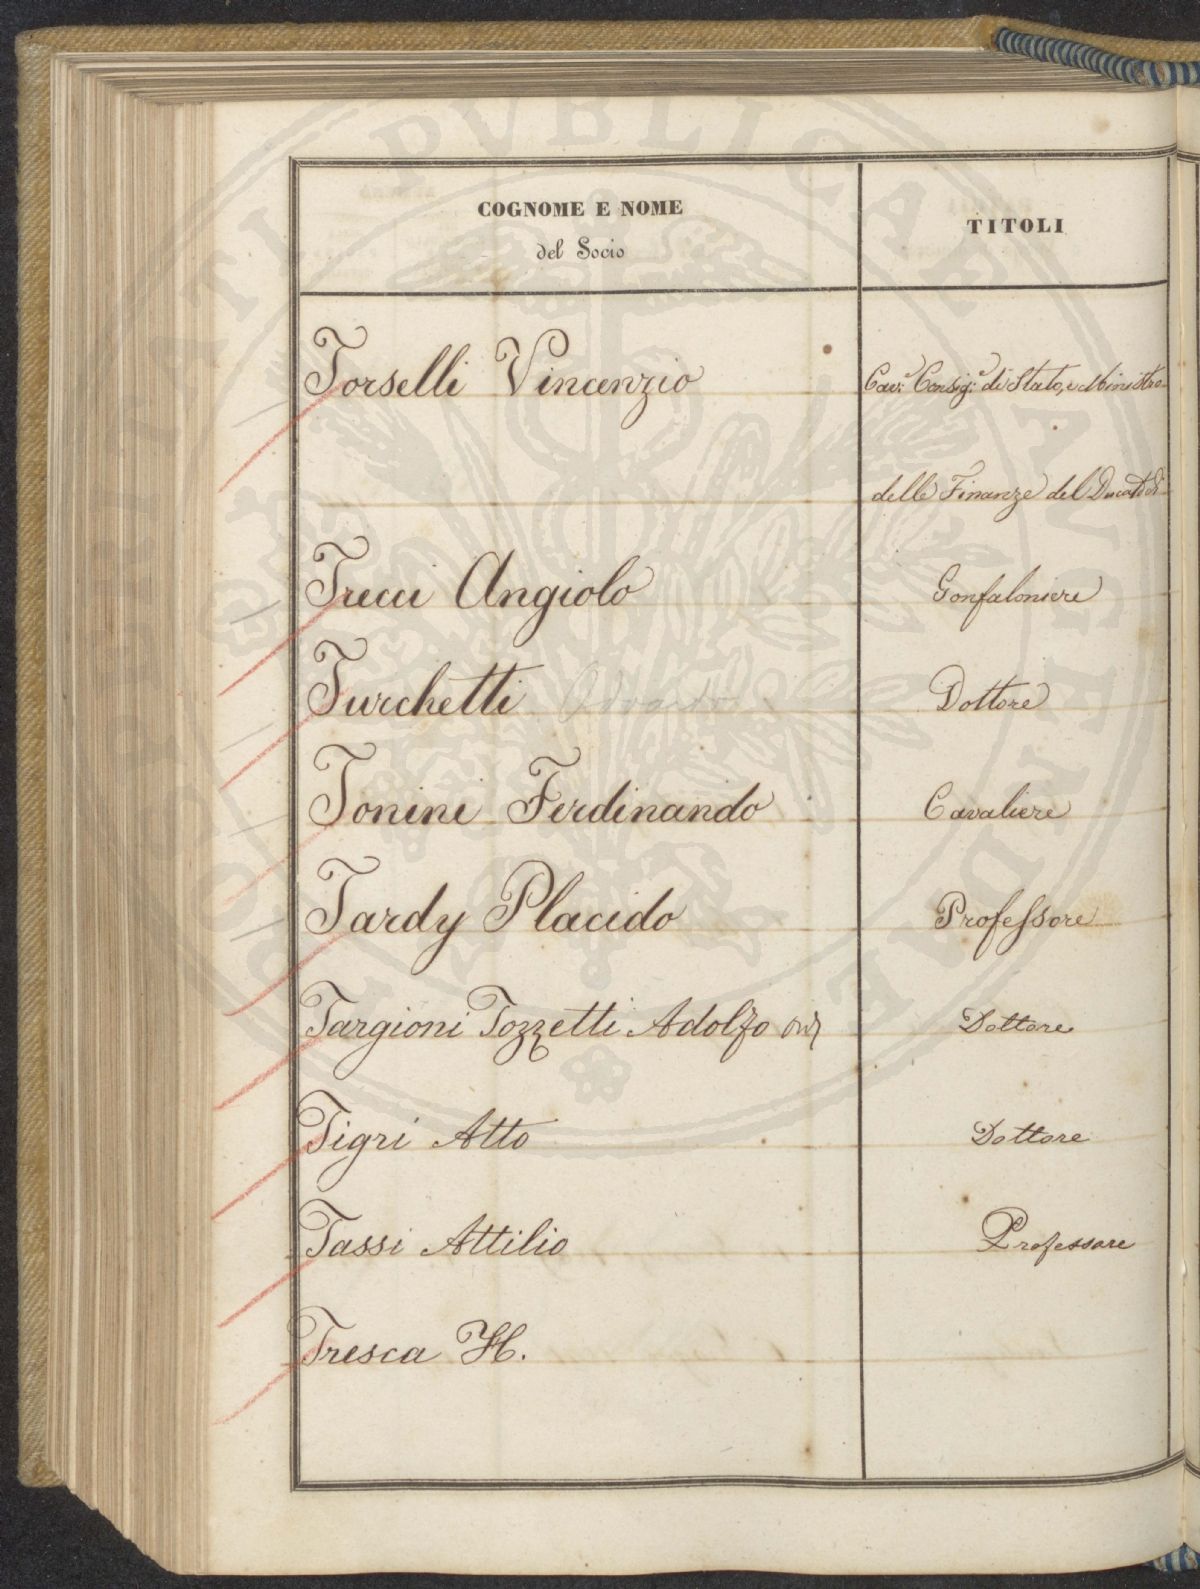 COGNOME E NOME
del Socio
TITOLI
Torselli Vincenzio
Cav: Consig: di Stato, e Ministro
delle Finanze del Ducato di
Trecci Angiolo
Gonfaloniere
Turchetti Odoardo
Dottore
Tonini Ferdinando
Cavaliere
Tardy Placido
Professore
Targioni Tozzetti Adolfo
Dottore
Tigri Atto
Dottore
Tassi Attilio
Professore
Tresca H.